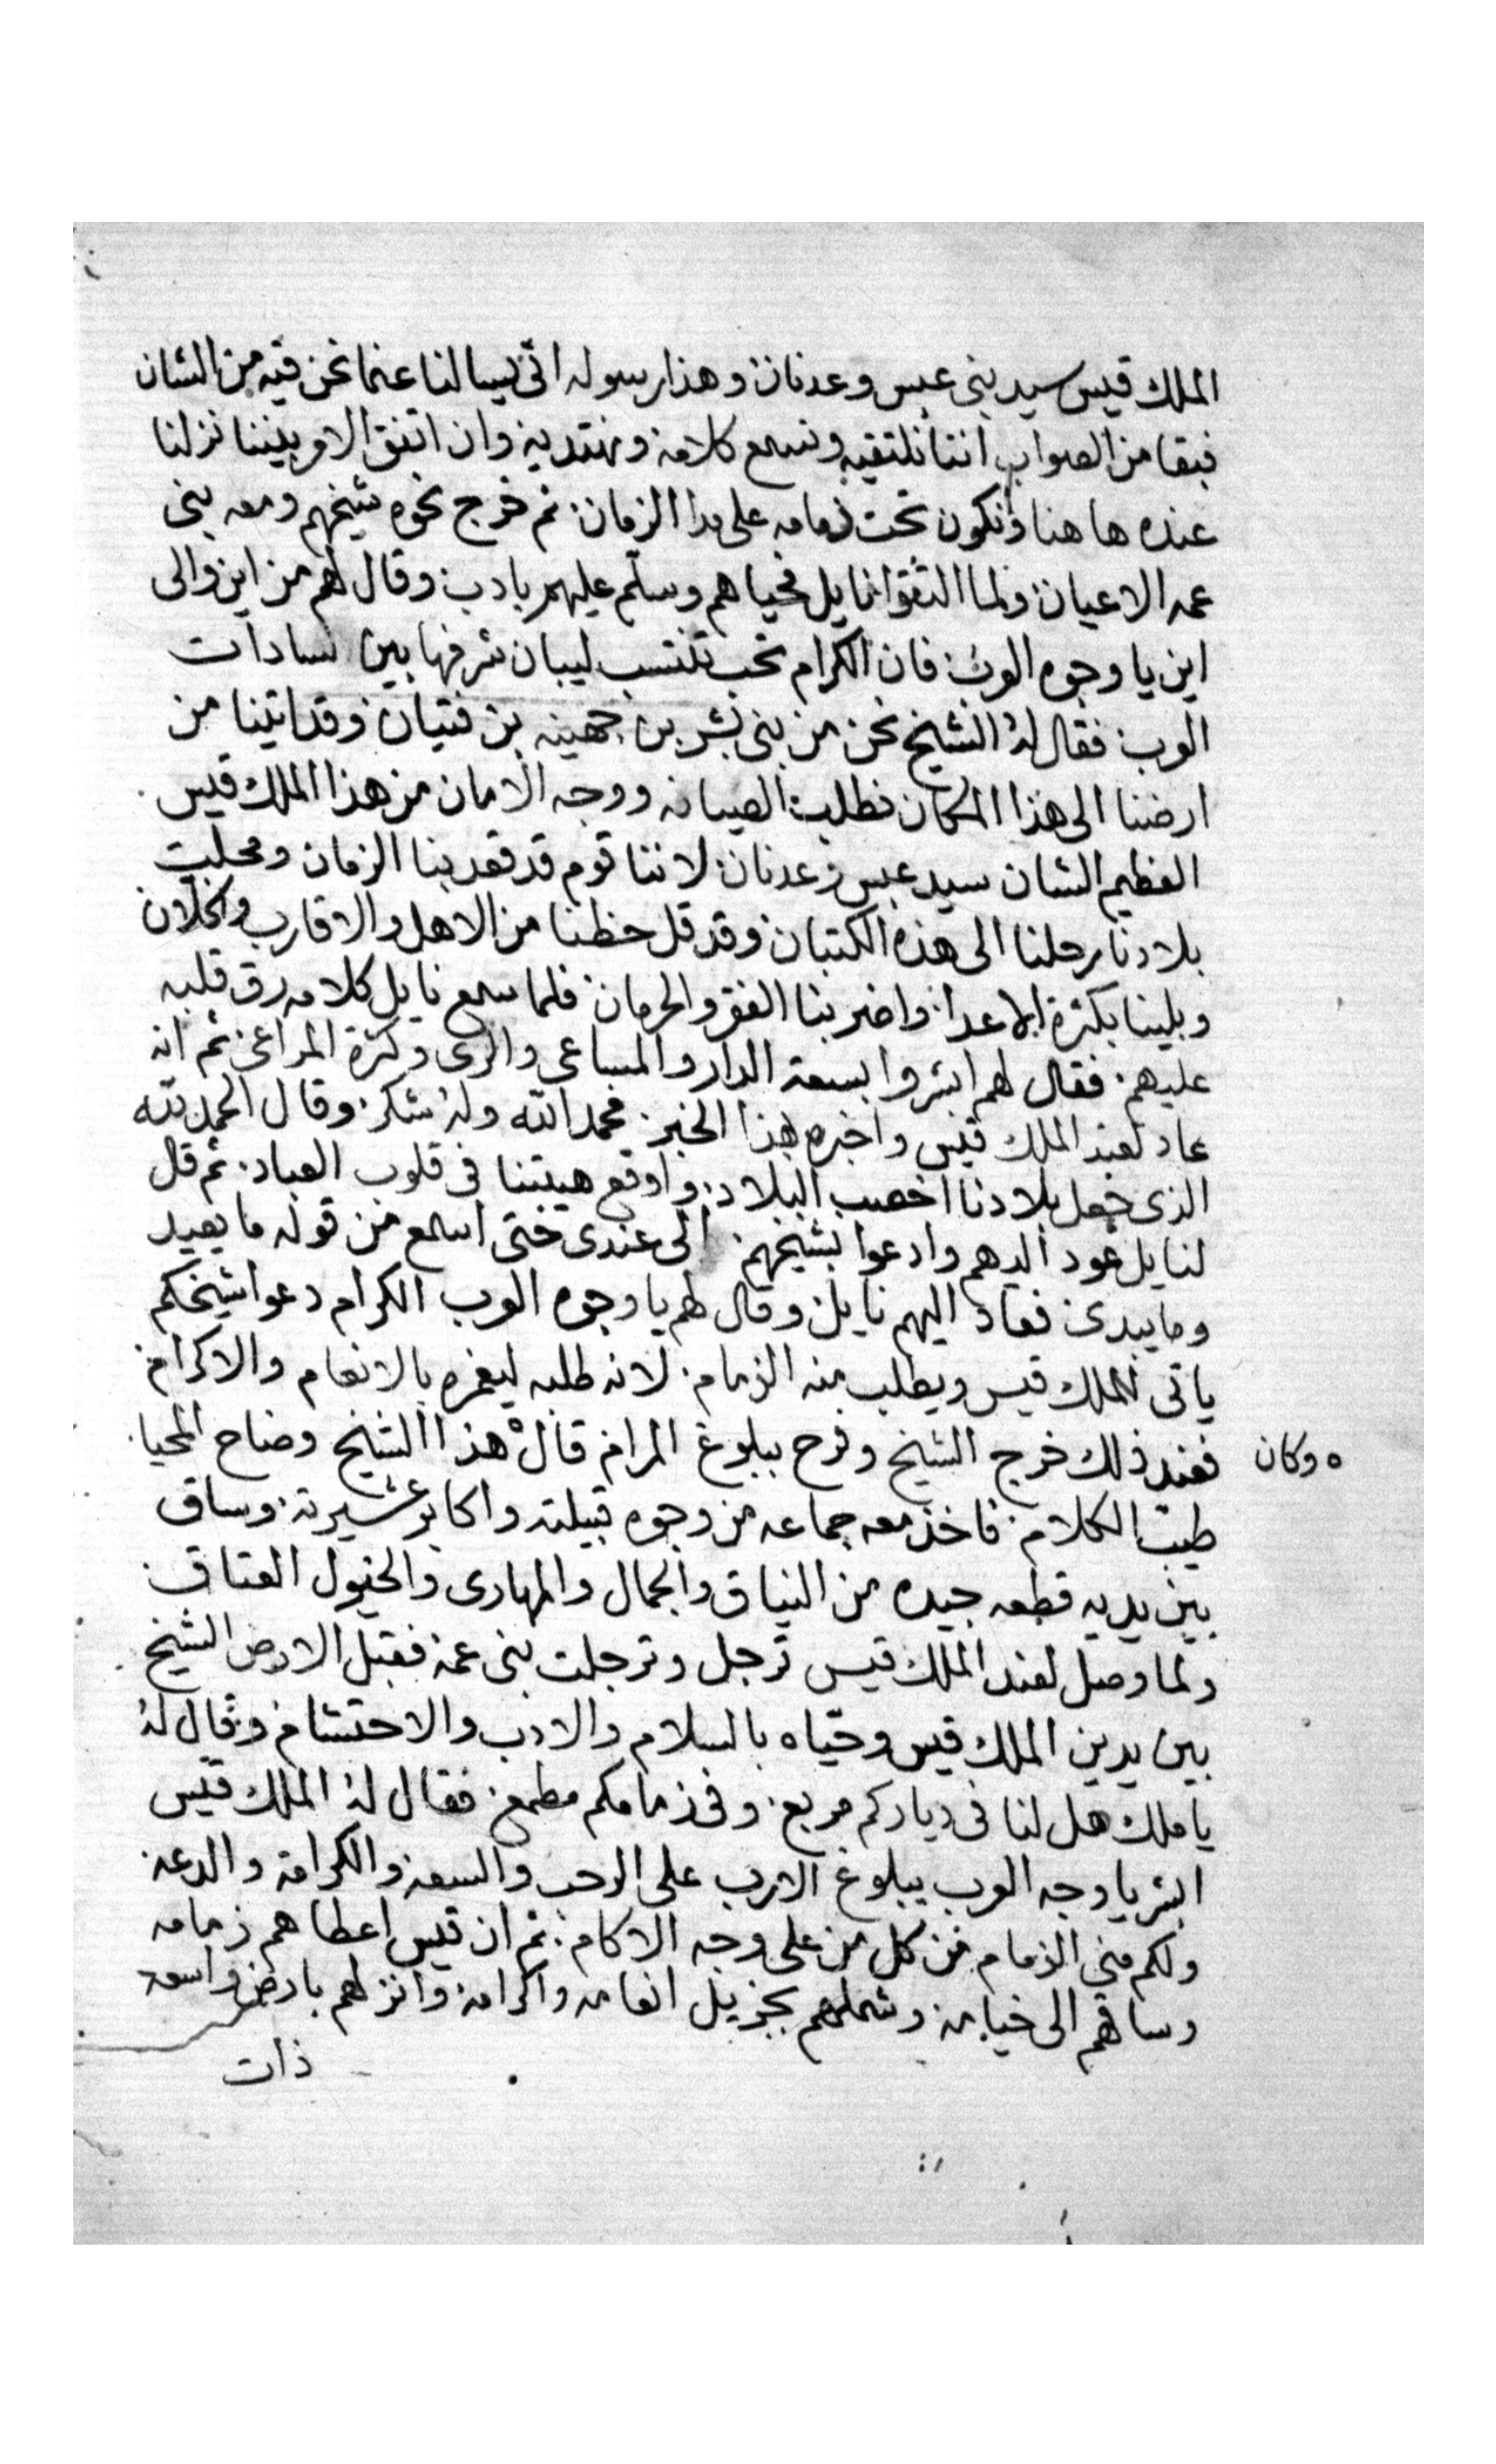 الملك قيس سيد بنى عبس وعدنان وهذا رسوله اتى يسالنا عنما نحن فيه من الشان
فبقا من الصواب اننا نلتقيه ونسمع كلامه ونهتديه وان اتفق الامر بيننا نزلنا
عنده ها هنا ونكون تحت زمامه على مدا الزمان ثم خرج نحوه شيخهم ومعه بنى
عمه الاعيان ولما التقوا نايل فحياهم وسلم عليهم بادب وقال لهم من اين والى
اين يا وجوه العرب فان الكرام تحب تنتسب ليبان شرفها بين لسادات
العرب فقال له الشيخ نحن من بنى بشر بن جهينه بن فتيان وقد اتينا من
ارضنا الى هذا المكان نطلب الصيانه ووجه الامان من هذا الملك قيس
العظيم الشان سيد عبس وعدنان لاننا قوم قد قعد بنا الزمان ومحلبت
بلادنا رحلنا الى هذه الكتبان وقد قل حظنا من الاهل والاقارب والخلان
وبلينا بكثرة الاعدا واضر بنا الفقر والحرمان فلما سمع نايل كلامه رق قلبه
عليهم فقال لهم ابشروا بسعة الدار والمساعى والرعى وكثرة المراعى ثم انه
عاد لعند الملك قيس واخبره بهذا الخبر فحمد الله وله شكر وقال الحمد لله
الذى جعل بلادنا اخصب البلاد واوقع هيبتنا فى قلوب العباد ثم قال
لنايل عود اليهم وادعوا بشيخهم الى عندى حتى اسمع من قوله ما يعيد
وما يبدى فعاد اليهم نايل وقال لهم يا وجوه العرب الكرام دعوا شيخكم
ياتى للملك قيس ويطلب منه الزمام لانه طلبه ليغمره بالانعام والاكرام
فعند ذلك خرج الشيخ وفرح ببلوغ المرام قال هذا الشيخ وضاح المحيا
ه وكان
طيب الكلام فاخذ معه جماعه من وجوه قبيلته واكابر عشيرته وساق
بين يديه قطعه جيده من النياق والجمال والمهارى والخيول العتاق
ولما وصل لعند الملك قيس ترجل وترجلت بنى عمه فقبل الارض الشيخ
بين يدين الملك قيس وحياه بالسلام والادب والاحتشام وقال له
يا ملك هل لنا فى دياركم مربع وفى زمامكم مطمع فقال له الملك قيس
ابشر يا وجه العرب ببلوغ الارب على الرحب والسعه والكرامه والدعه
ولكم منى الزمام من كل من على وجه الاكام ثم ان قيس اعطاهم زمامه
وساقهم الى خيامه وشملهم بجزيل انعامه واكرامه وانزلهم بارض واسعه
ذات